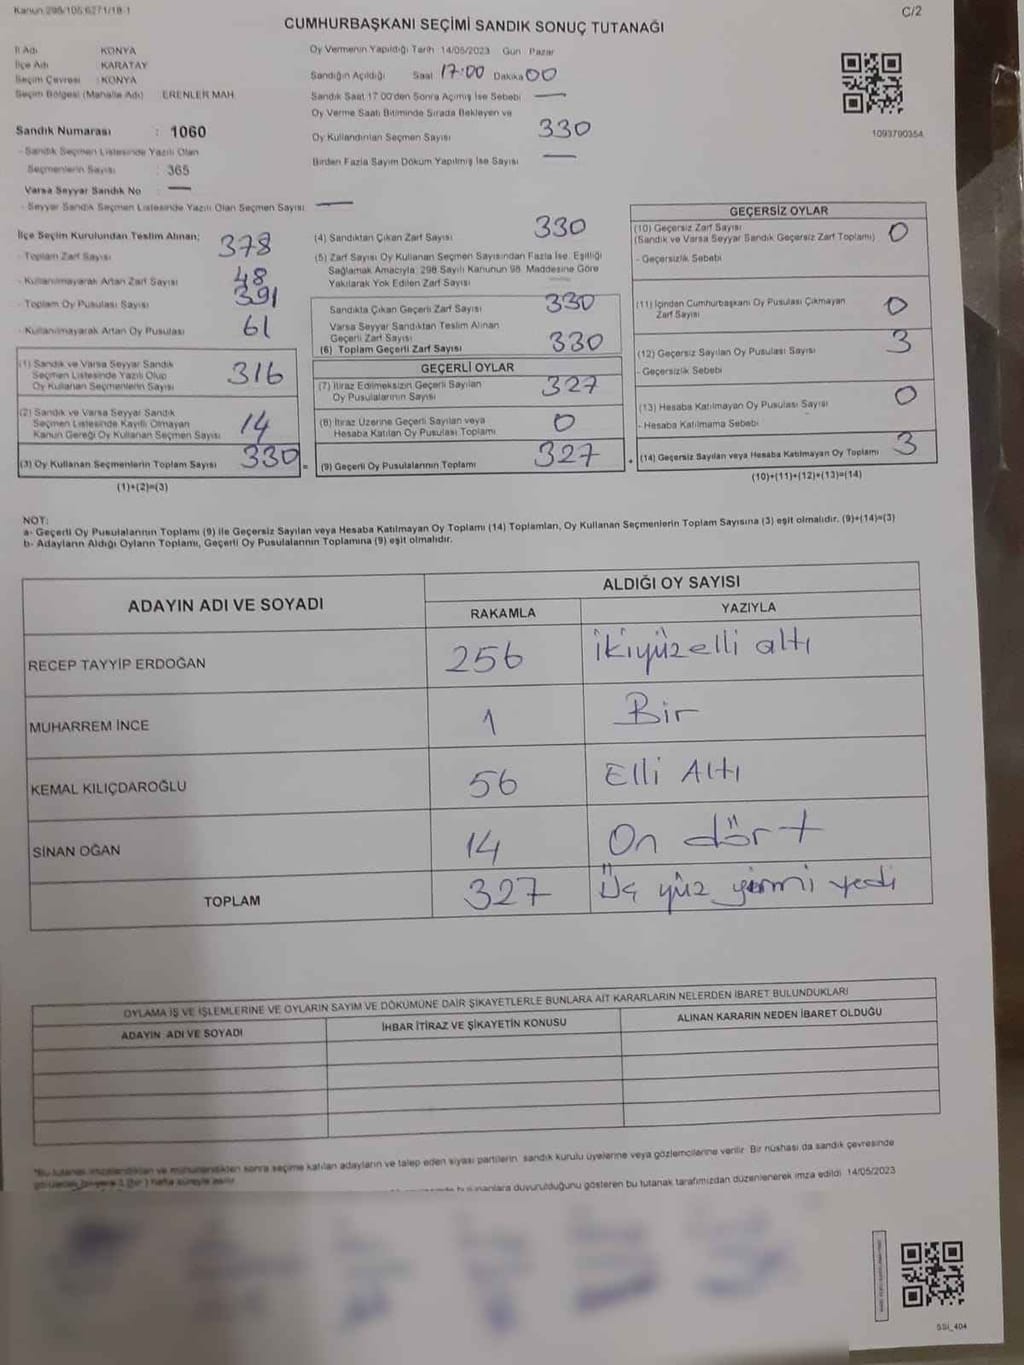 Kanun 298/105 6271/18-1
C/2
CUMHURBAŞKANI SEÇİMİ SANDIK SONUÇ TUTANAĞI
İl Adı KONYA
İlçe Adı KARATAY
Seçim Çevresi : KONYA
Seçim Bölgesi (Mahalle Adı) ERENLER MAH.
Sandık Numarası : 1060
- Sandık Seçmen Listesinde Yazılı Olan
Seçmenlerin Sayısı : 365
Varsa Seyyar Sandık No —
- Seyyar Sandık Seçmen Listesinde Yazılı Olan Seçmen Sayısı —
Oy Vermenin Yapıldığı Tarih 14/05/2023 Gün Pazar
Sandığın Açıldığı Saat 17:00 Dakika 00
Sandık Saat 17.00'den Sonra Açımış İse Sebebi —
Oy Verme Saati Bitiminde Sırada Bekleyen ve
Oy Kullandırılan Seçmen Sayısı 330
Birden Fazla Sayım Döküm Yapılmış İse Sayısı —
1093790354
İlçe Seçim Kurulundan Teslim Alınan;
- Toplam Zarf Sayısı 378
- Kullanılmayarak Artan Zarf Sayısı 48
- Toplam Oy Pusulası Sayısı 391
- Kullanılmayarak Artan Oy Pusulası 61
(1) Sandık ve Varsa Seyyar Sandık
Seçmen Listesinde Yazılı Olup
Oy Kullanan Seçmenlerin Sayısı 316
(2) Sandık ve Varsa Seyyar Sandık
Seçmen Listesinde Kayıtlı Olmayan
Kanun Gereği Oy Kullanan Seçmen Sayısı 14
(3) Oy Kullanan Seçmenlerin Toplam Sayısı 330 =
(1)+(2)=(3)
(4) Sandıktan Çıkan Zarf Sayısı 330
(5) Zarf Sayısı Oy Kullanan Seçmen Sayısından Fazla İse, Eşitliği
Sağlamak Amacıyla 298 Sayılı Kanunun 98. Maddesine Göre
Yakılarak Yok Edilen Zarf Sayısı —
Sandıkta Çıkan Geçerli Zarf Sayısı 330
Varsa Seyyar Sandıktan Teslim Alınan
Geçerli Zarf Sayısı
(6) Toplam Geçerli Zarf Sayısı 330
GEÇERLİ OYLAR
(7) İtiraz Edilmeksizin Geçerli Sayılan
Oy Pusulalarının Sayısı 327
(8) İtiraz Üzerine Geçerli Sayılan veya
Hesaba Katılan Oy Pusulası Toplamı 0
(9) Geçerli Oy Pusulalarının Toplamı 327 +
GEÇERSİZ OYLAR
(10) Geçersiz Zarf Sayısı
(Sandık ve Varsa Seyyar Sandık Geçersiz Zarf Toplamı) 0
- Geçersizlik Sebebi
(11) İçinden Cumhurbaşkanı Oy Pusulası Çıkmayan
Zarf Sayısı 0
(12) Geçersiz Sayılan Oy Pusulası Sayısı 3
- Geçersizlik Sebebi
(13) Hesaba Katılmayan Oy Pusulası Sayısı 0
- Hesaba Katılmama Sebebi
(14) Geçersiz Sayılan veya Hesaba Katılmayan Oy Toplamı 3
(10)+(11)+(12)+(13)=(14)
NOT:
a- Geçerli Oy Pusulalarının Toplamı (9) ile Geçersiz Sayılan veya Hesaba Katılmayan Oy Toplamı (14) Toplamları, Oy Kullanan Seçmenlerin Toplam Sayısına (3) eşit olmalıdır. (9)+(14)=(3)
b- Adayların Aldığı Oyların Toplamı, Geçerli Oy Pusulalarının Toplamına (9) eşit olmalıdır.
ADAYIN ADI VE SOYADI
ALDIĞI OY SAYISI
RAKAMLA YAZIYLA
RECEP TAYYİP ERDOĞAN 256 İkiyüzelli altı
MUHARREM İNCE 1 Bir
KEMAL KILIÇDAROĞLU 56 Elli Altı
SİNAN OĞAN 14 On dört
TOPLAM 327 Üç yüz yirmi yedi
OYLAMA İŞ VE İŞLEMLERİNE VE OYLARIN SAYIM VE DÖKÜMÜNE DAİR ŞİKAYETLERLE BUNLARA AİT KARARLARIN NELERDEN İBARET BULUNDUKLARI
ADAYIN ADI VE SOYADI İHBAR İTİRAZ VE ŞİKAYETİN KONUSU ALINAN KARARIN NEDEN İBARET OLDUĞU
*Bu tutanak imzalandıktan ve mühürlendikten sonra seçime katılan adayların ve talep eden siyasi partilerin sandık kurulu üyelerine veya gözlemcilerine verilir. Bir nüshası da sandık çevresinde
duyurulduğunu gösteren bu tutanak tarafımızdan düzenlenerek imza edildi. 14/05/2023
SSI_404